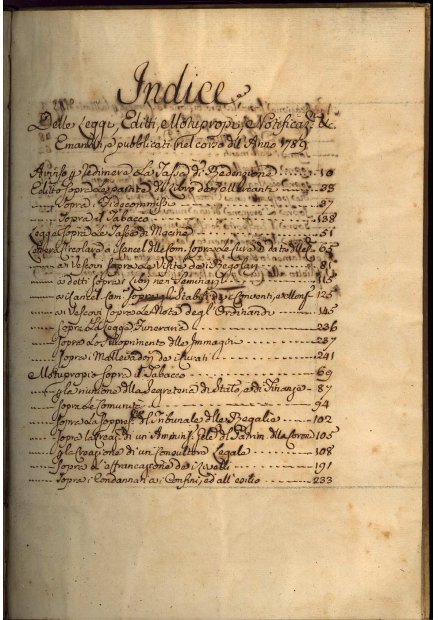 Indice
Delle Leggi, Editti, Motupropri, e Notificaz.ni &c.
Emanati, e pubblicati nel corso dell Anno 1789
Avviso p redimere la Tassa di Redenzione 10
Editto sopra 35
Sopra i Fidecommissi 37
Sopra il Tabacco 138
Legge sopra le Tasse di Macine 51
Circolare a i Cancel. delle Com. sopra 65
a i Vescovi sopra le Visite de i Regolari 81
a detti sopra i nei Seminari 115
a i Cancel. Com. sopra gli de i Conventi, e 125
a i Vescovi sopra le Note degl' Ordinandi 145
Sopra la Legge Funeraria 236
Sopra lo Scoprimento delle Immagini 237
Sopra i Mallevadori de i Curati 241
Motuproprio sopra il Tabacco 69
p la riunione della Segreteria di Stato, e di Finanze 87
Sopra le Comunità 94
Sopra la soppress. del Tribunale delle Regalie 102
Sopra la creaz. di un del Patrim. della Coron. 105
p la creazione di un Consultore Legale 108
Sopra l'affrancazione de i Livelli 191
Sopra i Condannati a i Confini, ed all' esilio 233